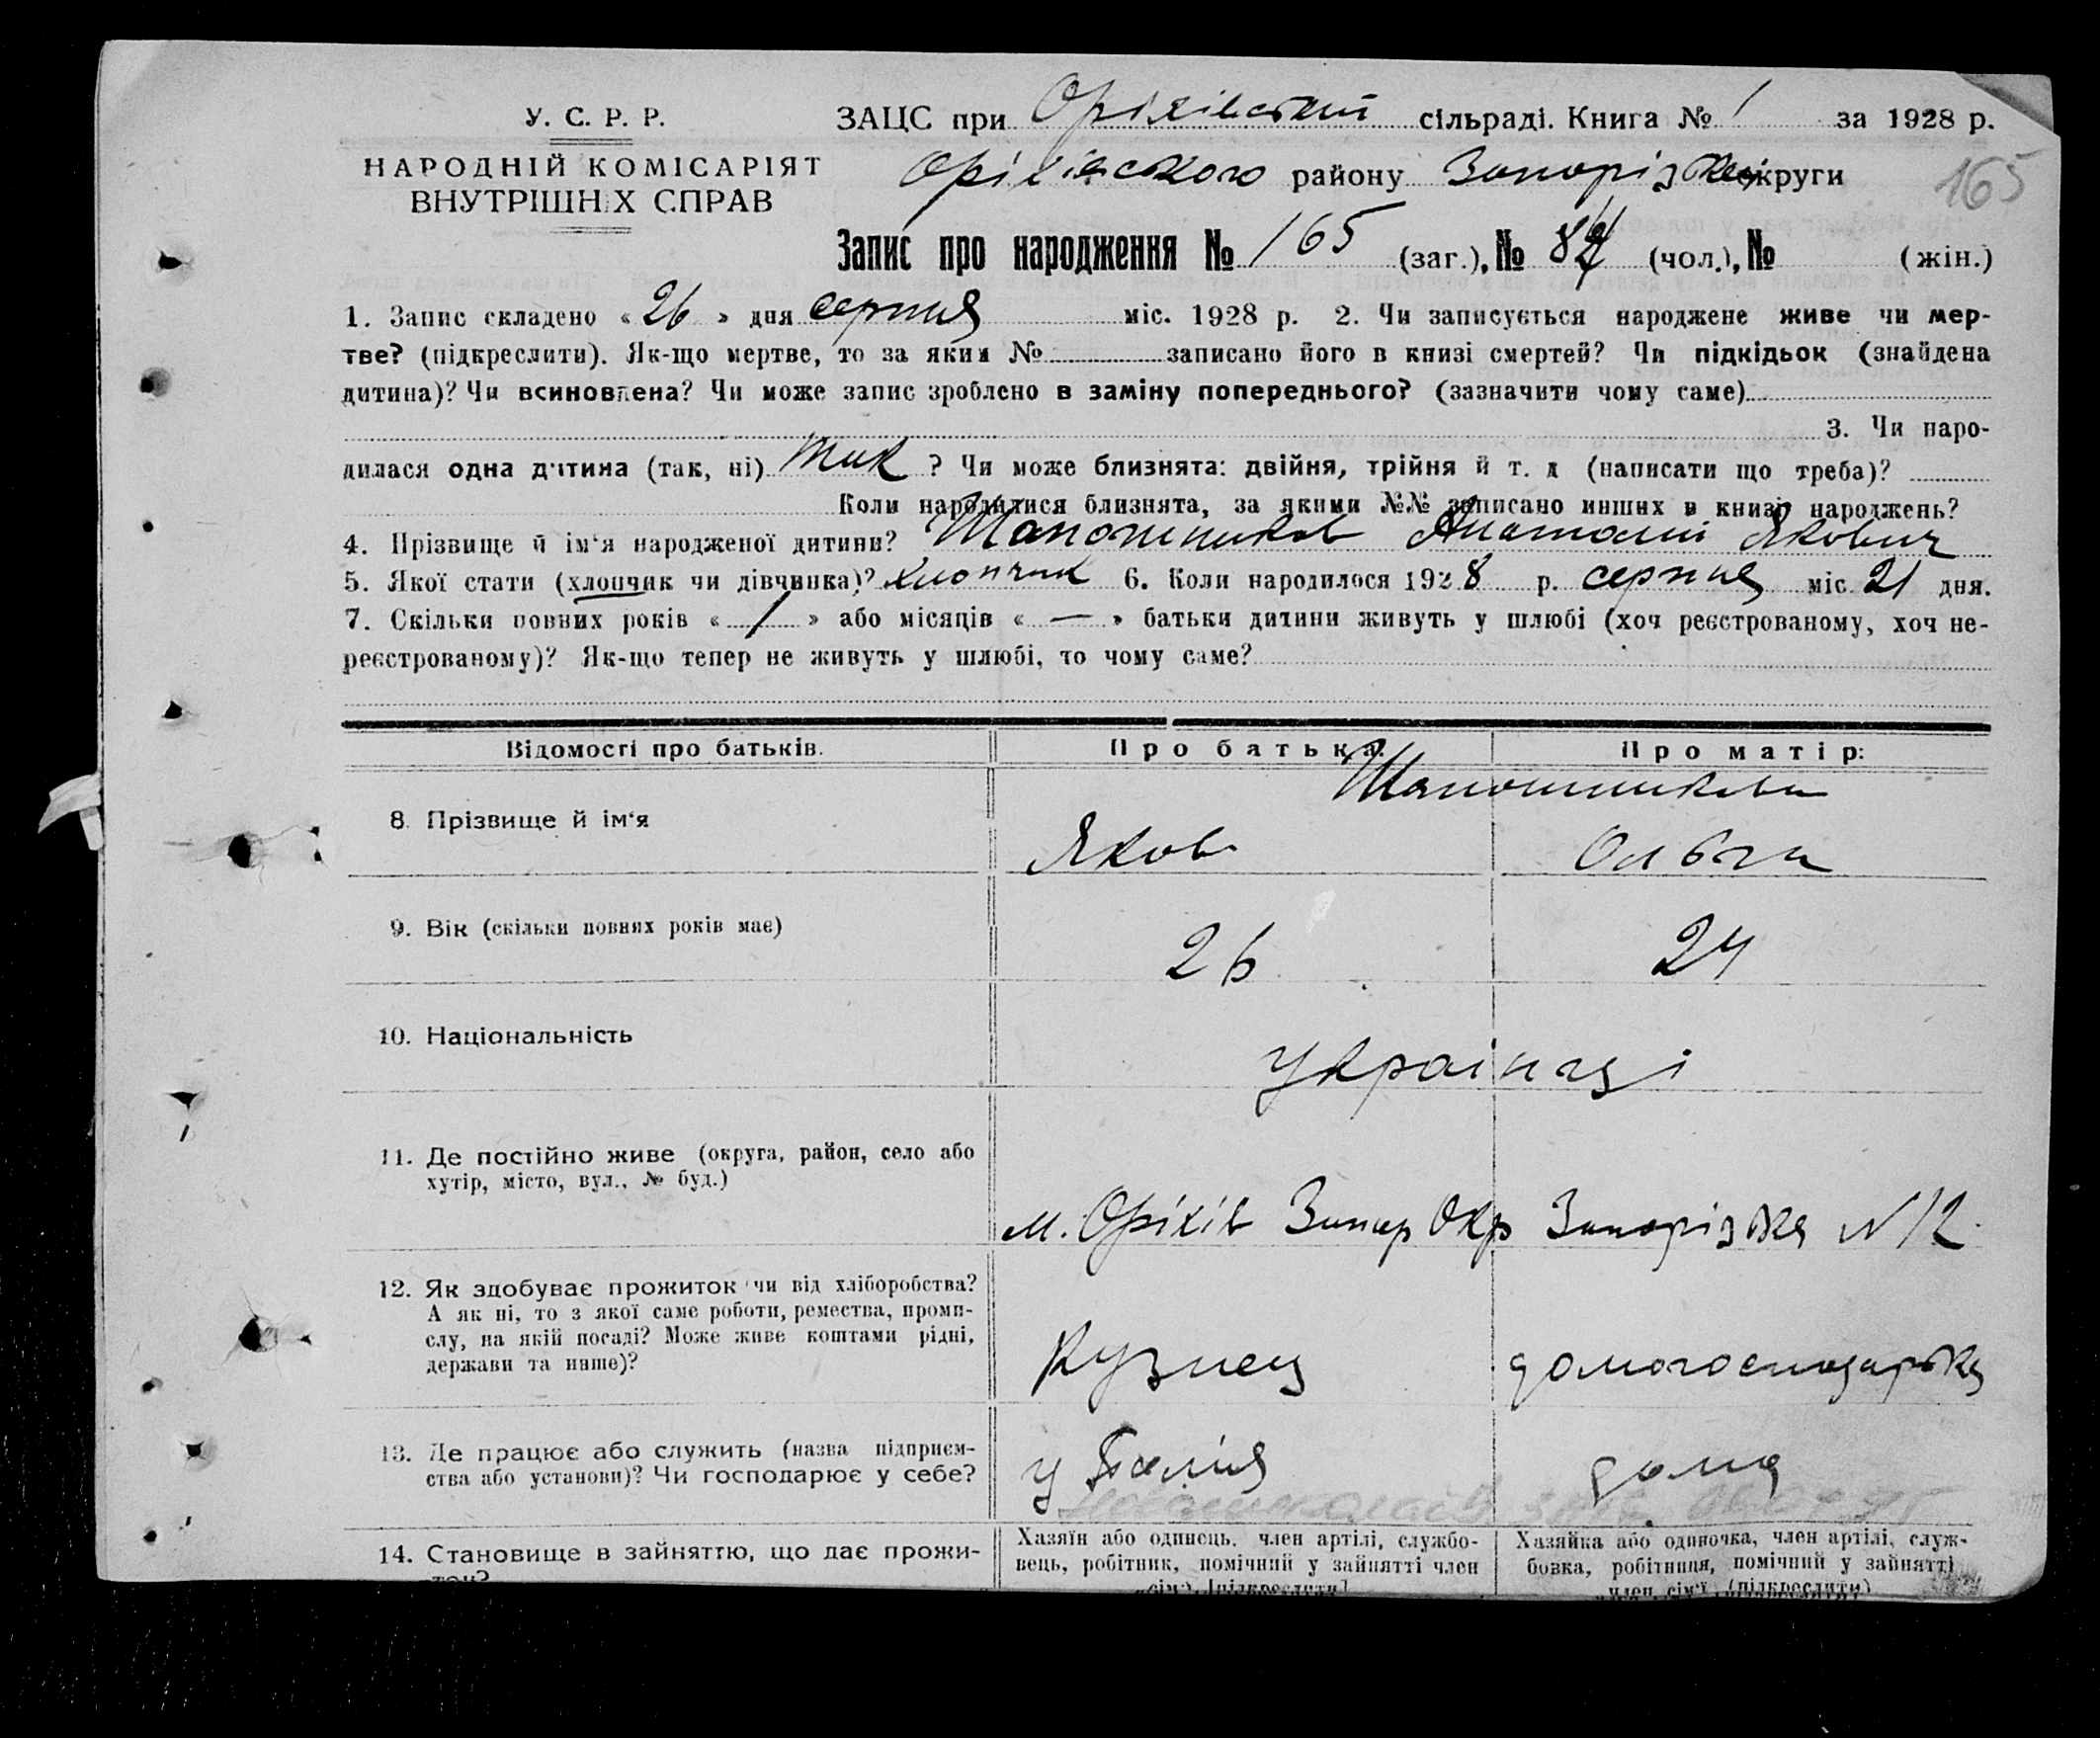 У. С. Р. Р.
НАРОДНІЙ КОМІСАРІЯТ
ВНУТРІШНІХ СПРАВ
ЗАЦС при Оріхівській сільраді. Книга № 1 за 1928 р.
Оріхівського району Запорізької округи
165
Запис про народження № 165 (заг.), № 84 (чол.), № (жін.)
1. Запис складено « 26 » дня серпня міс. 1928 р. 2. Чи записується народжене живе чи мер-
тве? (підкреслити). Як-що мертве, то за яким № записано його в книзі смертей? Чи підкідьок (знайдена
дитина)? Чи всиновлена? Чи може запис зроблено в заміну попереднього? (зазначити чому саме)
3. Чи наро-
дилася одна дитина (так, ні) так ? Чи може близнята: двійня, трійня й т. д (написати що треба)?
Коли народилися близнята, за якими №№ записано инших в книзі народжень?
4. Прізвище й ім‘я народженої дитини? Шапошников Анатолій Якович
5. Якої стати (хлопчик чи дівчинка)? хлопчик 6. Коли народилося 1928 р. серпня міс. 21 дня.
7. Скільки повних років « 1 » або місяців « — » батьки дитини живуть у шлюбі (хоч реєстрованому, хоч не-
реєстрованому)? Як-що тепер не живуть у шлюбі, то чому саме?
Відомості про батьків. Про батька: Про матір:
Шапошникови
8. Прізвище й ім‘я Яков Ольга
9. Вік (скільки повних років має) 26 24
10. Національність українці
11. Де постійно живе (округа, район, село або
хутір, місто, вул., № буд.)
м. Оріхів Запор Окр Запорізька N 12
12. Як здобуває прожиток чи від хліборобства?
А як ні, то з якої саме роботи, ремества, проми-
слу, на якій посаді? Може живе коштами рідні,
держави та инше)?
Кузнец домогосподарка
13. Де працює або служить (назва підприєм-
ства або установи)? Чи господарює у себе?
у дома
14. Становище в зайняттю, що дає прожи-
ток?
Хазяїн або одинець, член артілі, службо-
вець, робітник, помічний у зайнятті член
сім‘ї [підкреслити]
Хазяйка або одиночка, член артілі, служ-
бовка, робітниця, помічний у зайнятті
член сім‘ї (підкреслити)